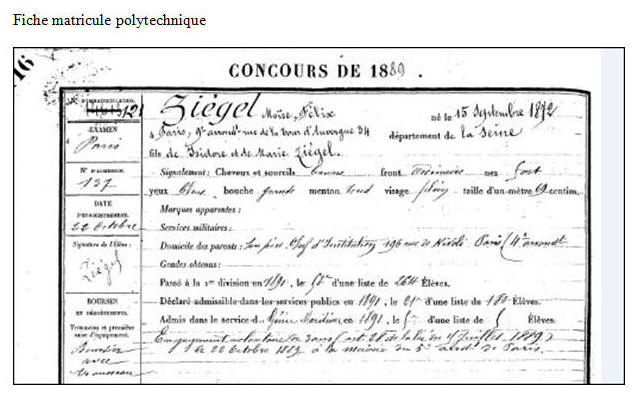 Fiche matricule polytechnique
16
CONCOURS DE 1889.
N° D'IMMATRICULATION.
121
EXAMEN
à
Paris
N° D'ADMISSION.
137
DATE
D'ENREGISTREMENT.
22 Octobre
Signature de l'Élève:
Ziégel
BOURSES
ET DÉGRÈVEMENTS.
Trousseau et première
mise d'équipement.
Boursier
avec
trousseau
Ziégel Moïse, Félix né le 15 Septembre 1872
à Paris, 9e arrondt rue de la Tour d'Auvergne 34 département de la Seine
fils de Isidore et de Marie Ziégel.
Signalement: Cheveux et sourcils front nez fort
yeux bleus bouche grande menton rond visage plein taille d'un mètre centim.
Marques apparentes:
Services militaires:
Domicile des parents: Son père, Chef d'Institution, 196 rue de Rivoli Paris (4e arrondt
Grades obtenus:
Passé à la 1re division en 1890, le d'une liste de 264 Élèves.
Déclaré admissible dans les services publics en 1891, le 21e d'une liste de Élèves.
Admis dans le service du Génie Maritime, en 1891, le d'une liste de Élèves.
Engagement volontaire de 3 ans (art. 28 de la loi du 15 Juillet 1889)
le 22 Octobre 1889 à la mairie du 5e arrdt de Paris.